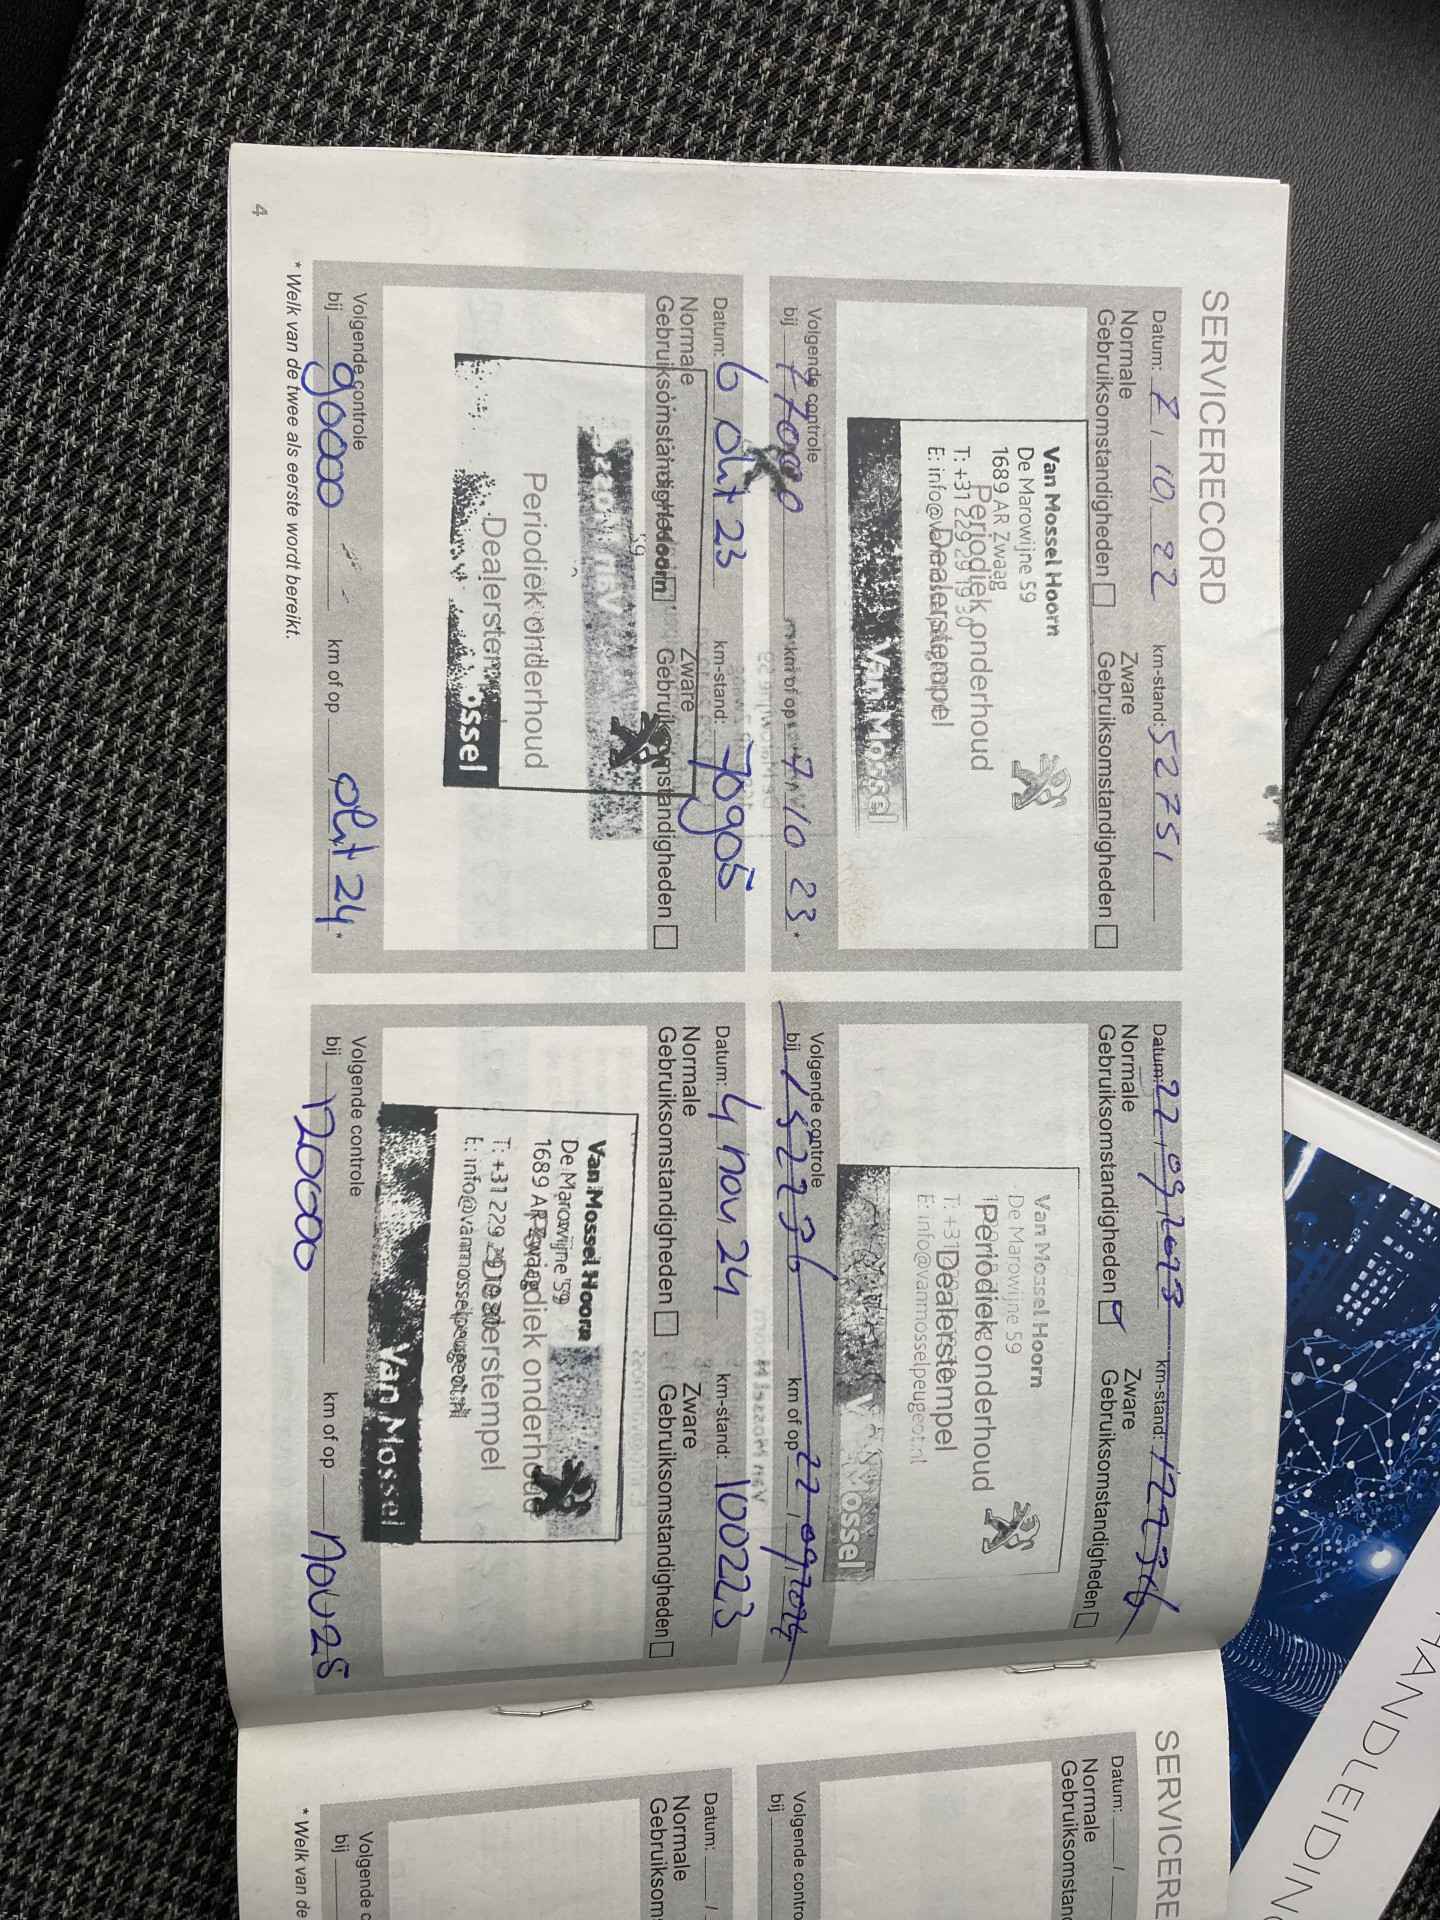 SERVICERECORD
Datum: 7, 10, 22 km-stand: 52751
Normale Gebruiksomstandigheden Zware Gebruiksomstandigheden
Van Mossel Hoorn
De Marowijne 59
1689 AR Zwaag
Periodiek onderhoud
T: +31 229 29 19 30
Dealerstempel
Van Mossel
Volgende controle
bij 77000 km of op 7 10 23 *
Datum: 22, 09, 2023 km-stand:
Normale Gebruiksomstandigheden Zware Gebruiksomstandigheden
Van Mossel Hoorn
De Marowijne 59
Periodiek onderhoud
Dealerstempel
E: info@vanmosselpeugeot.nl
Van Mossel
Volgende controle
bij km of op
Datum: 6 okt 23 km-stand: 70905
Normale Gebruiksomstandigheden Zware Gebruiksomstandigheden
Hoorn
Periodiek onderhoud
Dealerstempel
ossel
Volgende controle
bij 90000 km of op okt 24 *
Datum: 4 nov 24 km-stand: 100223
Normale Gebruiksomstandigheden Zware Gebruiksomstandigheden
Van Mossel Hoorn
De Marowijne 59
1689 AR Zwaag
Periodiek onderhoud
Dealerstempel
E: info@vanmosselpeugeot.nl
Van Mossel
Volgende controle
bij 120000 km of op nov 25
* Welk van de twee als eerste wordt bereikt.
4
SERVICERE
Datum: /
Normale
Gebruiksomstan
Volgende contro
bij
Datum: /
Normale
Gebruiksom
Volgende c
bij
* Welk van de
HANDLEIDING